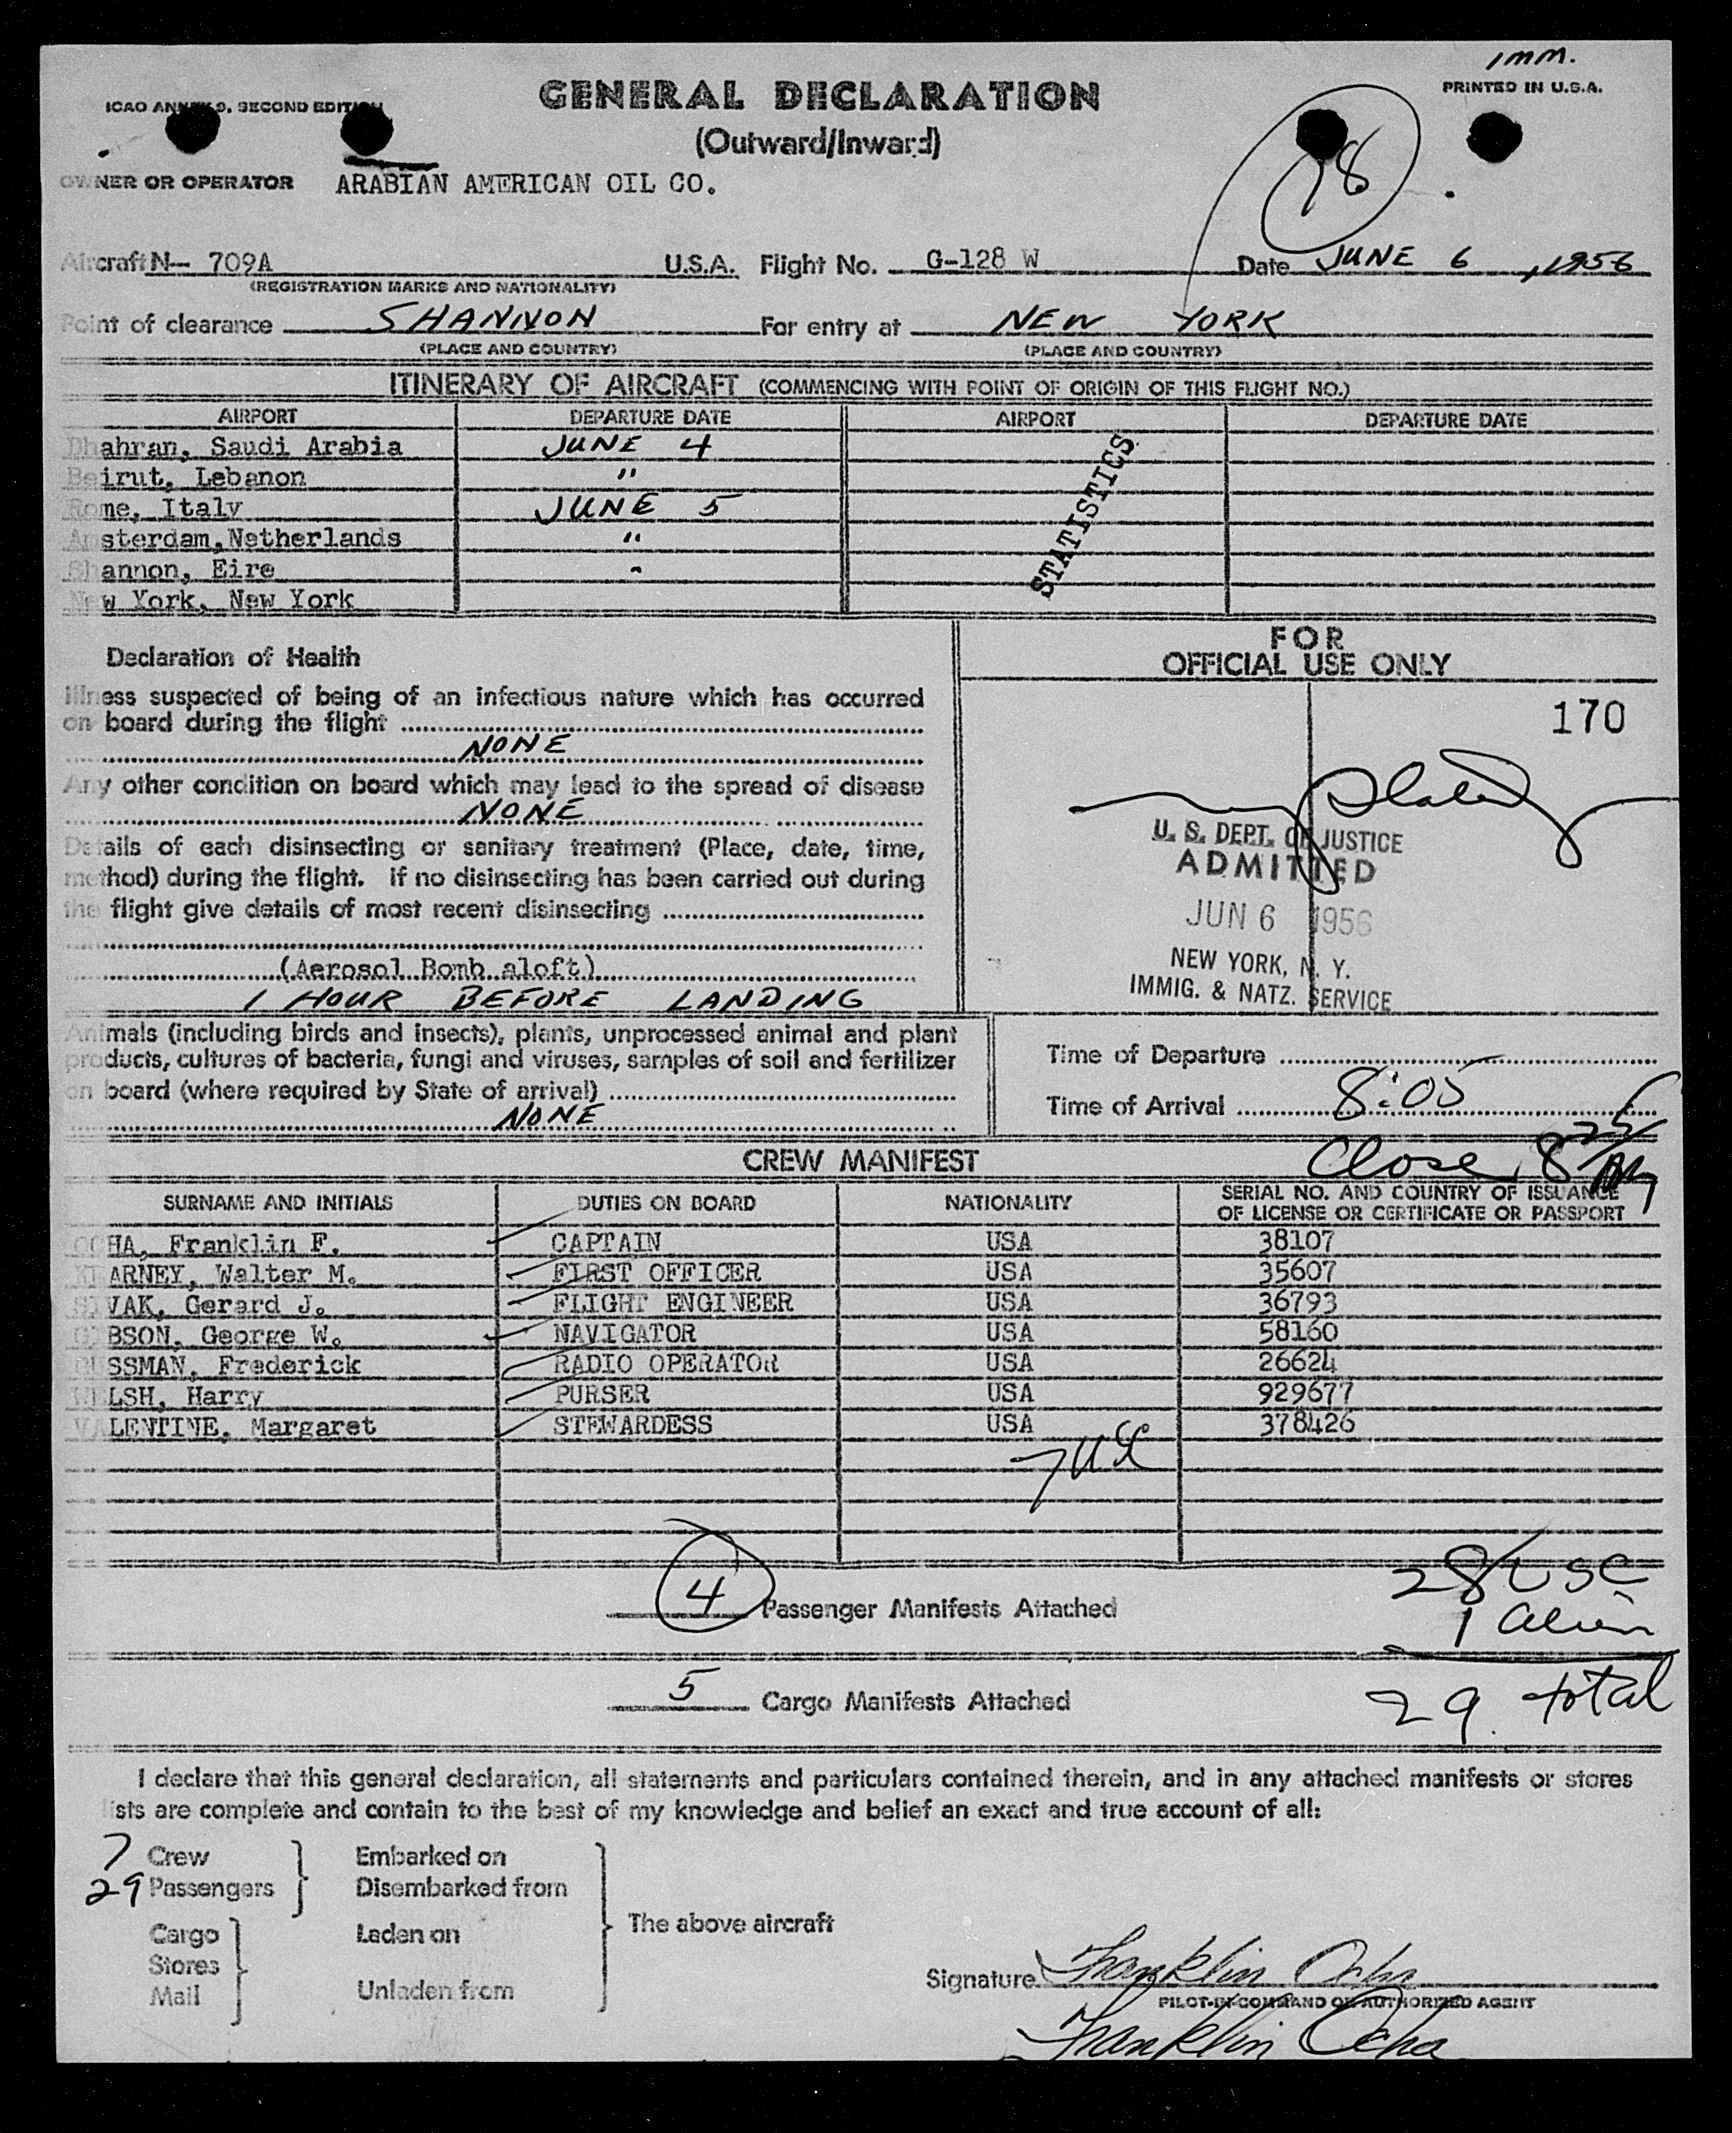 1mm.
PRINTED IN U.S.A.
ICAO ANNEX 9, SECOND EDITION
GENERAL DECLARATION
(Outward/Inward)
98
OWNER OR OPERATOR ARABIAN AMERICAN OIL CO.
Aircraft N- 709A U.S.A. Flight No. G-128 W Date JUNE 6, 1956
(REGISTRATION MARKS AND NATIONALITY)
Point of clearance SHANNON For entry at NEW YORK
(PLACE AND COUNTRY) (PLACE AND COUNTRY)
ITINERARY OF AIRCRAFT (COMMENCING WITH POINT OF ORIGIN OF THIS FLIGHT NO.)
AIRPORT DEPARTURE DATE AIRPORT DEPARTURE DATE
Dhahran, Saudi Arabia JUNE 4
Beirut, Lebanon "
Rome, Italy JUNE 5
Amsterdam, Netherlands "
Shannon, Eire "
New York, New York
STATISTICS
Declaration of Health
Illness suspected of being of an infectious nature which has occurred
on board during the flight
NONE
Any other condition on board which may lead to the spread of disease
NONE
Details of each disinsecting or sanitary treatment (Place, date, time,
method) during the flight. If no disinsecting has been carried out during
the flight give details of most recent disinsecting
(Aerosol Bomb aloft)
1 HOUR BEFORE LANDING
FOR
OFFICIAL USE ONLY
170
U. S. DEPT. OF JUSTICE
ADMITTED
JUN 6 1956
NEW YORK, N. Y.
IMMIG. & NATZ. SERVICE
Animals (including birds and insects), plants, unprocessed animal and plant
products, cultures of bacteria, fungi and viruses, samples of soil and fertilizer
on board (where required by State of arrival)
NONE
Time of Departure
Time of Arrival 8:05
Close 8 25
CREW MANIFEST
SURNAME AND INITIALS DUTIES ON BOARD NATIONALITY SERIAL NO. AND COUNTRY OF ISSUANCE
OF LICENSE OR CERTIFICATE OR PASSPORT
OCHA, Franklin F. CAPTAIN USA 38107
KEARNEY, Walter M. FIRST OFFICER USA 35607
SIVAK, Gerard J. FLIGHT ENGINEER USA 36793
GIBSON, George W. NAVIGATOR USA 58160
SSMAN, Frederick RADIO OPERATOR USA 26624
WELSH, Harry PURSER USA 929677
VALENTINE, Margaret STEWARDESS USA 378426
4 Passenger Manifests Attached
28 USC
1 alien
5 Cargo Manifests Attached
29 total
I declare that this general declaration, all statements and particulars contained therein, and in any attached manifests or stores
lists are complete and contain to the best of my knowledge and belief an exact and true account of all:
7 Crew Embarked on
29 Passengers Disembarked from
Cargo Laden on The above aircraft
Stores
Mail Unladen from
Signature Franklin Ocha
PILOT-IN-COMMAND OR AUTHORIZED AGENT
Franklin Ocha